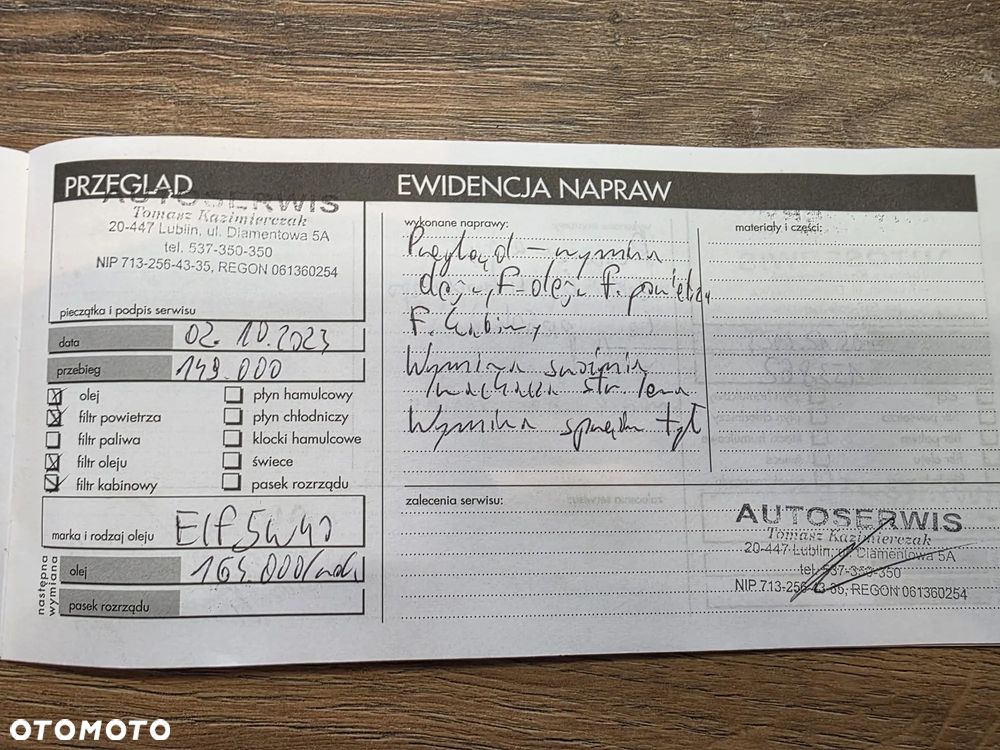 PRZEGLĄD
AUTOSERWIS
Tomasz Kazimierczak
20-447 Lublin, ul. Diamentowa 5A
tel. 537-350-350
NIP 713-256-43-35, REGON 061360254
pieczątka i podpis serwisu
data 02.10.2023
przebieg 149.000
olej
filtr powietrza
filtr paliwa
filtr oleju
filtr kabinowy
płyn hamulcowy
płyn chłodniczy
klocki hamulcowe
świece
pasek rozrządu
marka i rodzaj oleju Elf 5W40
następna wymiana
olej 164.000/
pasek rozrządu
EWIDENCJA NAPRAW
wykonane naprawy:
Przegląd - wymiana
oleju, F. oleju F. powietrza
F. kabiny
Wymiana
wahacza
Wymiana sprężyn tył
materiały i części:
zalecenia serwisu:
AUTOSERWIS
Tomasz Kazimierczak
20-447 Lublin, ul. Diamentowa 5A
tel. 537-350-350
NIP 713-256-43-35, REGON 061360254
OTOMOTO